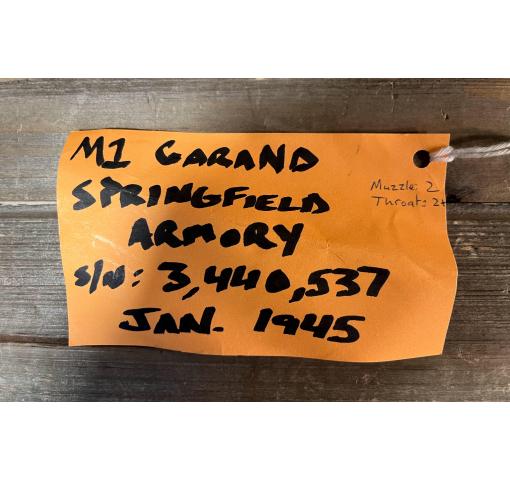 M1 GARAND
SPRINGFIELD
ARMORY
S/N: 3,440,537
JAN. 1945
Muzzle: 2
Throat: 2+